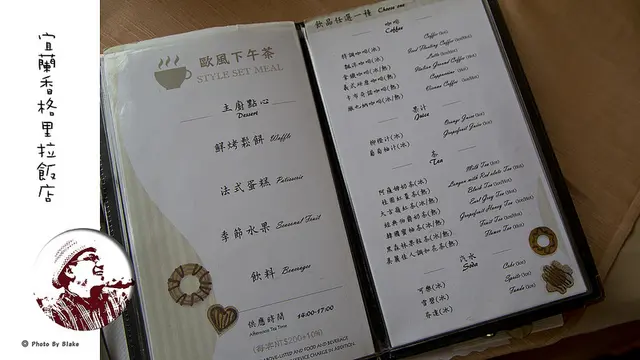 宜蘭香格里拉飯店
© Photo By Blake
歐風下午茶
STYLE SET MEAL
主廚點心
Dessert
鮮烤鬆餅 Waffle
法式蛋糕 Patisserie
季節水果 Seasonal Fruit
飲料 Beverages
供應時間 14:00-17:00
Afternoon Tea Time
(每客NT$200+10%)
飲品任選一種 Choose one
咖啡
Coffee
特調咖啡(冰) Coffee (ice)
漂浮咖啡(冰) Iced Floating Coffee (ice)
拿鐵咖啡(熱) Latte (hot)
義式特濃咖啡(熱)
卡布奇諾咖啡(熱) Cappuccino (hot)
維也納咖啡(冰) Vienna Coffee (ice)
果汁
Juice
柳橙汁(冰) Orange Juice (ice)
葡萄柚汁(冰) Grapefruit Juice (ice)
茶
Tea
阿薩姆奶茶(冰) Milk Tea (ice)
桂圓紅棗茶(熱) Longan with Red date Tea (hot)
大吉嶺紅茶(冰) Black Tea (ice)
經典伯爵奶茶(熱) Earl Grey Tea (hot)
蜂蜜柚茶(熱) Grapefruit Honey Tea (hot)
黑森林果粒茶(熱) Fruit Tea (hot)
美麗佳人調和花茶(熱) Flower Tea (hot)
汽水
Soda
可樂(冰) Coke (ice)
雪碧(冰) Sprite (ice)
芬達(冰) Fanta (ice)